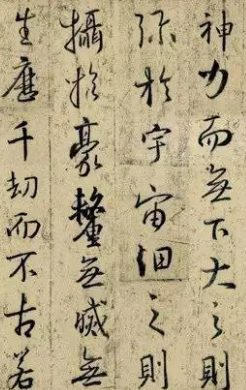 神力而無下大之則
弥於宇宙細之則
攝於豪釐無滅無
生歷千劫而不古若